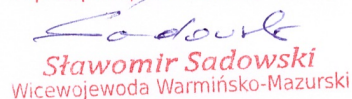 Sadowski
Sławomir Sadowski
Wicewojewoda Warmińsko-Mazurski